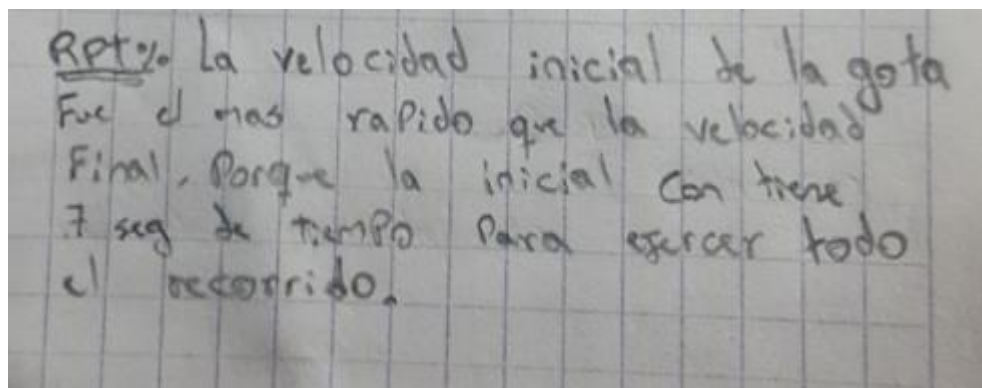 Rpt% La velocidad inicial de la gota
Fue el mas rapido que la velocidad
Final. Porque la inicial con tiene
7 seg de tiempo para esercer todo
el recorrido.